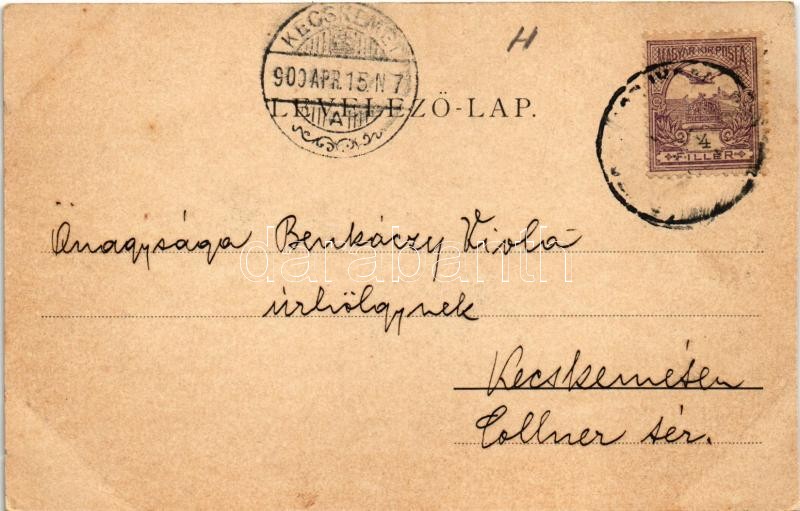 KECSKEMÉT
900 APR. 15 N 7
A
H
LEVELEZŐ-LAP.
MAGYAR KIR. POSTA
FILLÉR
Őnagysága Benkáczy Viola
úrhölgynek
Kecskeméten
Collner tér.
darabanth